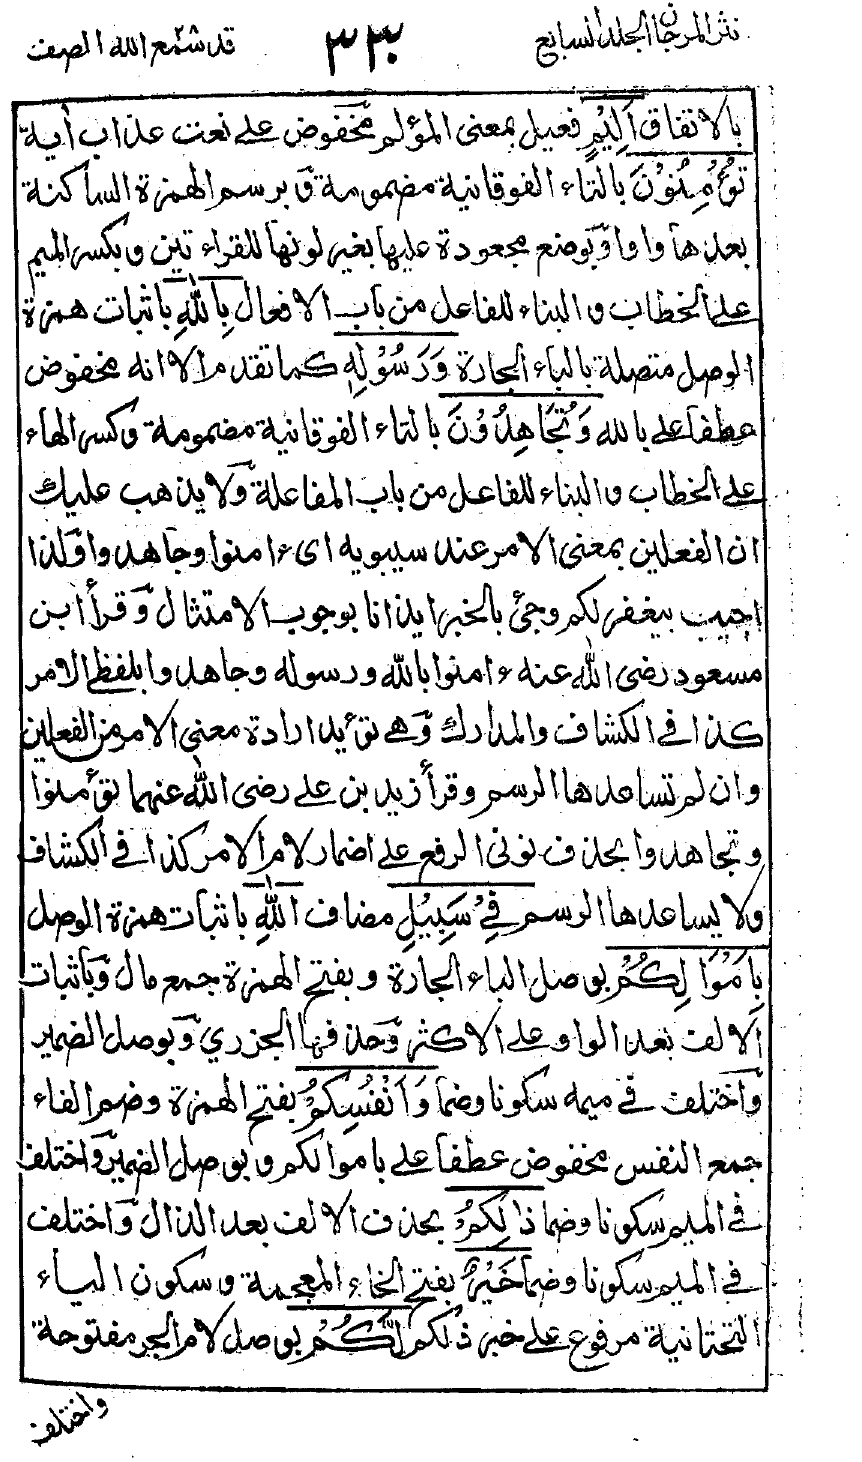 نثر المرجان الجلد السابع
٣٣٠
قد سمع الله الصف
بالاتفاق اَلِيْمٍ فعيل بمعنى المؤلم مخفوض على نعت عذاب أية
تُؤْمِنُوْنَ بالتاء الفوقانية مضمومة و برسم الهمزة الساكنة
بعدها واوا و بوضع مجعودة عليها بغير لونها للقراءتين و بكسر الميم
على الخطاب و البناء للفاعل من باب الافعال بِاللّٰهِ باثبات همزة
الوصل متصلة بالباء الجارة وَرَسُوْلِهٖ كما تقدم الا انه مخفوض
عطفا على بالله وَتُجَاهِدُوْنَ بالتاء الفوقانية مضمومة و كسر الهاء
على الخطاب و البناء للفاعل من باب المفاعلة ولا يذهب عليك
ان الفعلين بمعنى الامر عند سيبويه اى ءامنوا وجاهدوا ولذا
اجيب بيغفر لكم وجئ بالخبر ايذانا بوجوب الامتثال و قرأ ابن
مسعود رضى الله عنه ءامنوا بالله ورسوله وجاهدوا بلفظ الامر
كذا فى الكشاف والمدارك وهى تؤيد ارادة معنى الامر من الفعلين
وان لم تساعدها الرسم وقرأ زيد بن على رضى الله عنهما تؤمنوا
وتجاهدوا بحذف نونى الرفع على اضمار لام الامر كذا فى الكشاف
ولا يساعدها الرسم فِيْ سَبِيْلِ مضاف اللّٰهِ باثبات همزة الوصل
بِاَمْوَالِكُمْ بوصل الباء الجارة و بفتح الهمزة جمع مال و باثبات
الالف بعد الواو على الاكثر وحذفها الجزري و بوصل الضمير
واختلف فى ميمه سكونا وضما وَاَنْفُسِكُمْ بفتح الهمزة وضم الفاء
جمع النفس مخفوض عطفا على باموالكم و بوصل الضمير واختلف
فى الميم سكونا وضما ذٰلِكُمْ بحذف الالف بعد الذال واختلف
فى الميم سكونا وضما خَيْرٌ بفتح الخاء المعجمة و سكون الياء
التحتانية مرفوع على خبر ذلكم لَّكُمْ بوصل لام الجر مفتوحة
واختلف